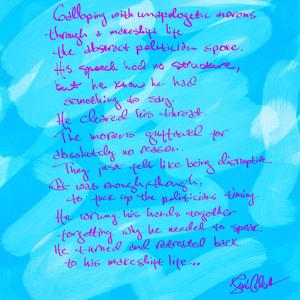 Galloping with unapologetic morons
through a makeshift life
the abstract politician spoke.
His speech had no structure,
but he knew he had
something to say.
He cleared his throat.
The morons guffawed for
absolutely no reason.
They just felt like being disruptive.
It was enough, though,
to fuck up the politicians timing.
He wrung his hands together
forgetting why he needed to speak.
He turned and retreated back
to his makeshift life...